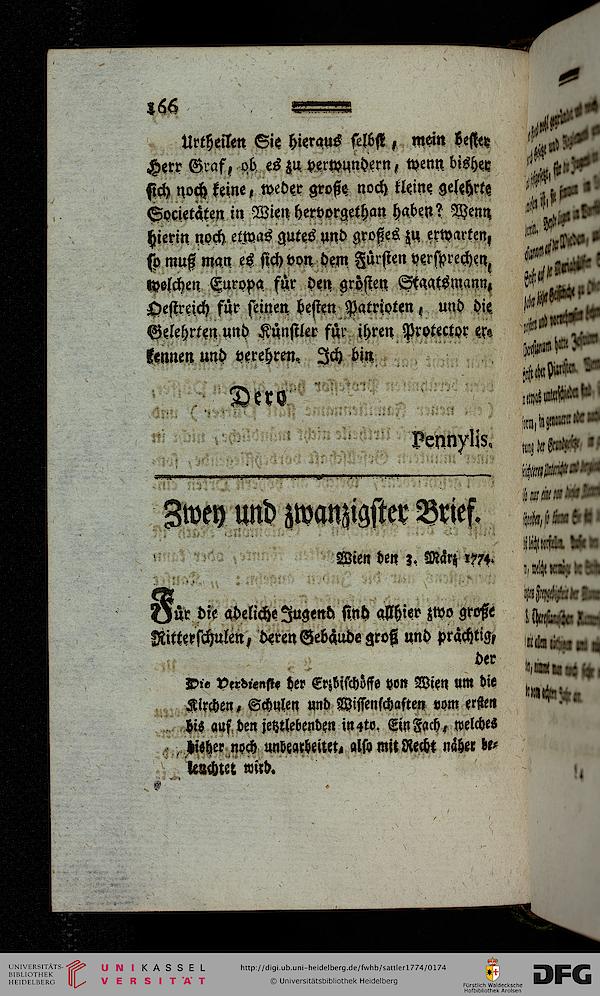 166
Urtheilen Sie hieraus selbst, mein bester
Herr Graf, ob es zu verwundern, wenn bisher
sich noch keine, weder große noch kleine gelehrte
Societäten in Wien hervorgethan haben? Wenn
hierin noch etwas gutes und großes zu erwarten,
so muß man es sich von dem Fürsten versprechen,
welchen Europa für den grösten Staatsmann,
Oestreich für seinen besten Patrioten, und die
Gelehrten und Künstler für ihren Protector er-
kennen und verehren. Ich bin
Dero
Pennylis.
Zwey und zwanzigster Brief.
Wien den 3. März 1774.
Für die adeliche Jugend sind allhier zwo große
Ritterschulen, deren Gebäude groß und prächtig,
der
Die Verdienste der Erzbischöffe von Wien um die
Kirchen, Schulen und Wissenschaften vom ersten
bis auf den jetztlebenden in 4to. Ein Fach, welches
bisher noch unbearbeitet, also mit Recht näher be-
leuchtet wird.
UNIVERSITÄTS-
BIBLIOTHEK
HEIDELBERG
UNIKASSEL
VERSITÄT
http://digi.ub.uni-heidelberg.de/fwhb/sattler1774/0174
© Universitätsbibliothek Heidelberg
Fürstlich Waldecksche
Hofbibliothek Arolsen
DFG